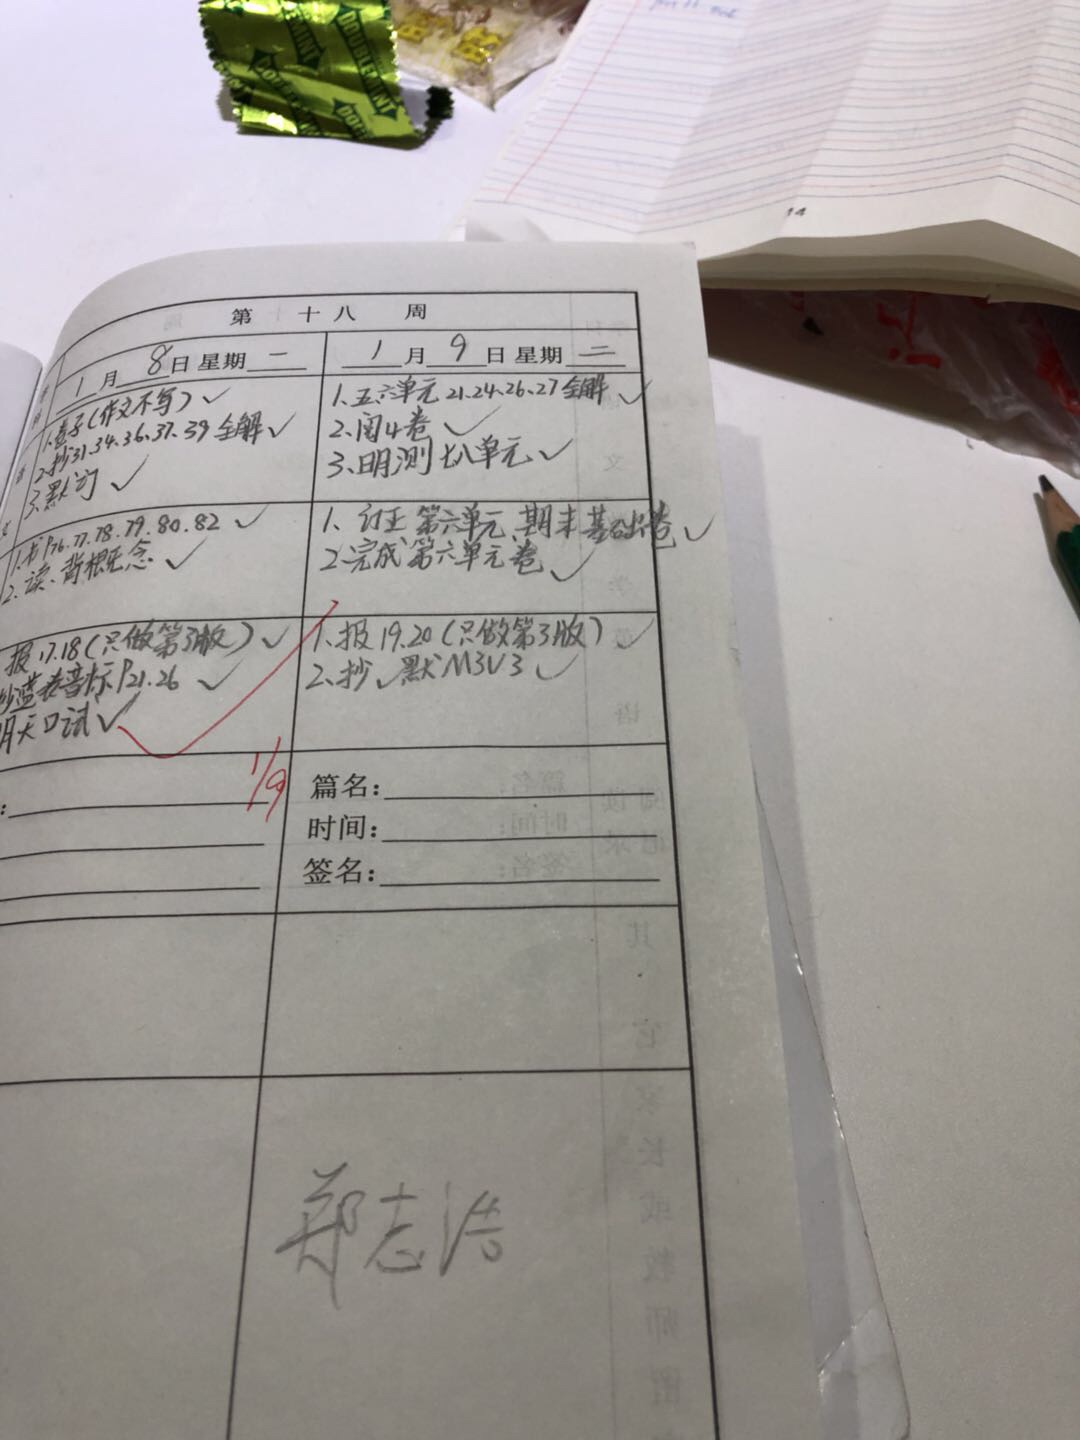 DOUBLEMINT
14
第十八周
1月8日 星期一
1月9日 星期二
1.盒子(作文不写)✓
2.抄31.34.36.37.39全解✓
3.默词✓
1.五六单元21.24.26.27全解✓
2.阅4卷✓
3.明测七八单元✓
1.书P76.77.78.79.80.82✓
2.读、背概念✓
1、订正第六单元、期末基础卷✓
2.完成第六单元卷✓
报17.18(只做第3版)✓
抄蓝表音标P21.26✓
明天口试✓
1.报19.20(只做第3版)✓
2.抄✓默M3U3✓
1/9
篇名:
时间:
签名:
郑志浩